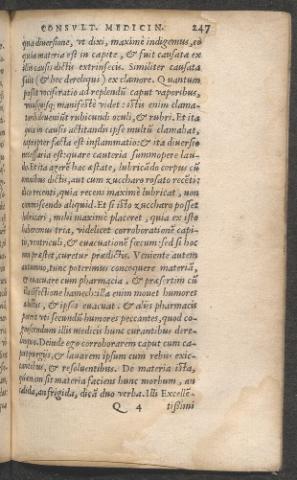 CONSVLT. MEDICIN. 247
qua diuersione, vt dixi, maximè indigemus, eò
quia materia est in capite, & fuit causata ex
illis causis dictis extrinsecis. Similiter causata
fuit (& hoc derelinqui) ex clamore. Quantum
possit vociferatio ad replendũ caput vaporibus,
vnusquisq; manifestè videt: istis enim clama-
toribus deueniũt rubicundi oculi, & rubri. Et ita
quia in causis actitandis ipse multũ clamabat,
propter facta est inflammatio: & ita diuersio
necessaria est: quare cauteria summopere lau-
do. Et ita agerẽ hac æstate, lubricãdo corpus cũ
omnibus dictis, aut cum zuccharo rosato recẽti:
dico recenti, quia recens maximè lubricat, non
commiscendo aliquid. Et si isto zuccharo posset
lubricari, mihi maximè placeret, quia ex isto
haberemus tria, videlicet corroborationẽ capi-
tis, ventriculi, & euacuationẽ fæcum: sed si hoc
non prestet, curetur prædictis. Veniente autem
autumno, tunc poterimus concoquere materiã,
& euacuare cum pharmacia. & præsertim cũ
infectione hamech: illa enim mouet humores
& ipsos euacuat. & aliis pharmacis
vti secundũ humores peccantes, quod co-
gnoscendum illis medicis hunc curantibus dere-
linquo. Deinde ego corroborarem caput cum ca-
purgiis, & lauarem ipsum cum rebus exic-
cantibus, & resoluentibus. De materia ista,
quænam sit materia faciens hunc morbum, an
calida, an frigida, dicã duo verba. Illi Excellẽ-
Q 4 tissimi